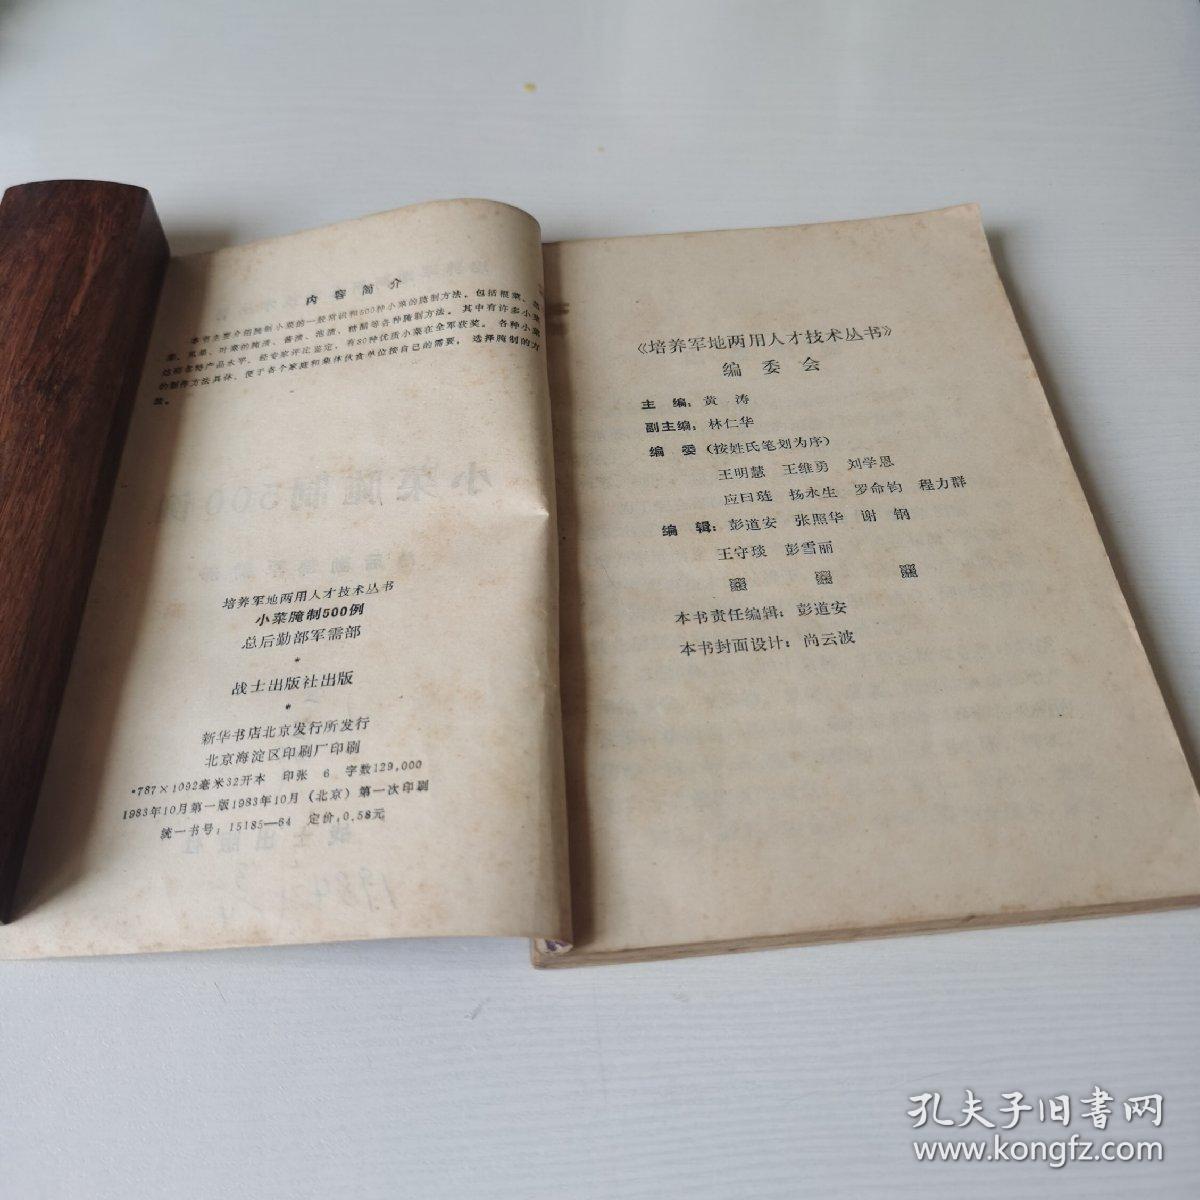 内容简介
本书主要介绍腌制小菜的一般常识和500种小菜的腌制方法。包括根菜、茎
菜、果菜、叶菜的腌渍、酱渍、泡渍、糖醋等各种腌制方法。其中有许多小菜
达到名特产品水平，经专家评比鉴定，有80种优质小菜在全军获奖。各种小菜
的制作方法具体，便于各个家庭和集体伙食单位按自己的需要，选择腌制的方
法。
培养军地两用人才技术丛书
小菜腌制500例
总后勤部军需部
*
战士出版社出版
*
新华书店北京发行所发行
北京海淀区印刷厂印刷
787×1092毫米32开本 印张 6 字数129,000
1983年10月第一版1983年10月（北京）第一次印刷
统一书号：15185—64 定价：0.58元
《培养军地两用人才技术丛书》
编委会
主 编：黄 涛
副主编：林仁华
编 委（按姓氏笔划为序）
王明慧 王维勇 刘学恩
应曰琏 杨永生 罗命钧 程力群
编 辑：彭道安 张照华 谢 钢
王守琰 彭雪丽
本书责任编辑：彭道安
本书封面设计：尚云波
孔夫子旧书网
www.kongfz.com